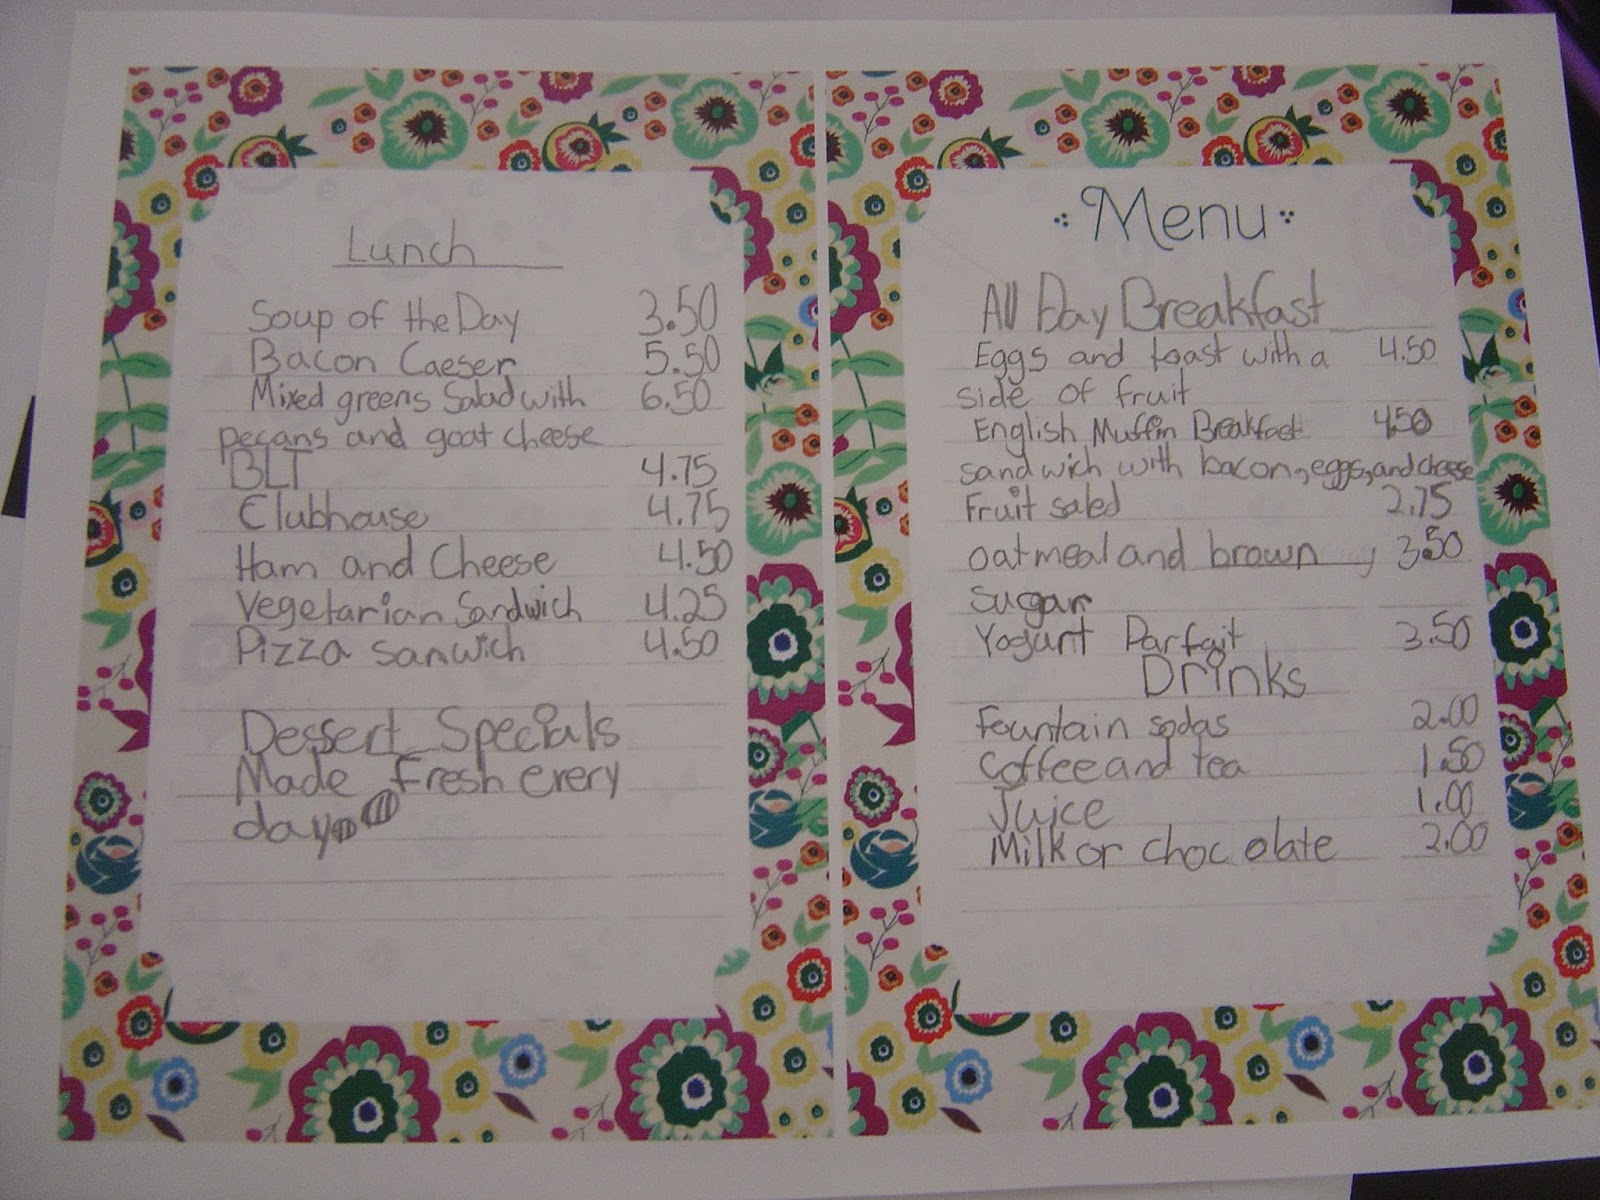 Lunch
Soup of the Day 3.50
Bacon Caeser 5.50
Mixed greens Salad with 6.50
pecans and goat cheese
BLT 4.75
Clubhouse 4.75
Ham and Cheese 4.50
Vegetarian Sandwich 4.25
Pizza sanwich 4.50
Dessert Specials
Made fresh every
day
Menu
All Day Breakfast
Eggs and toast with a 4.50
side of fruit
English Muffin Breakfast 4.50
sandwich with bacon, eggs, and cheese
Fruit saled 2.75
oatmeal and brown 3.50
sugar
Yogurt Parfait 3.50
Drinks
Fountain sodas 2.00
Coffee and tea 1.50
Juice 1.00
Milk or chocolate 2.00